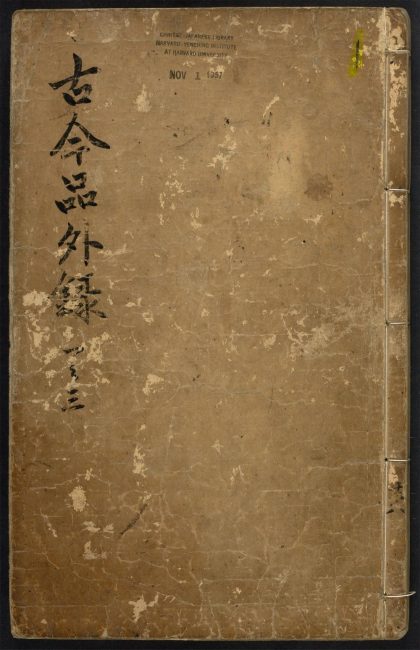 CHINESE-JAPANESE LIBRARY
HARVARD-YENCHING INSTITUTE
AT HARVARD UNIVERSITY
NOV 1 1957
古今品外錄 一之三
共八